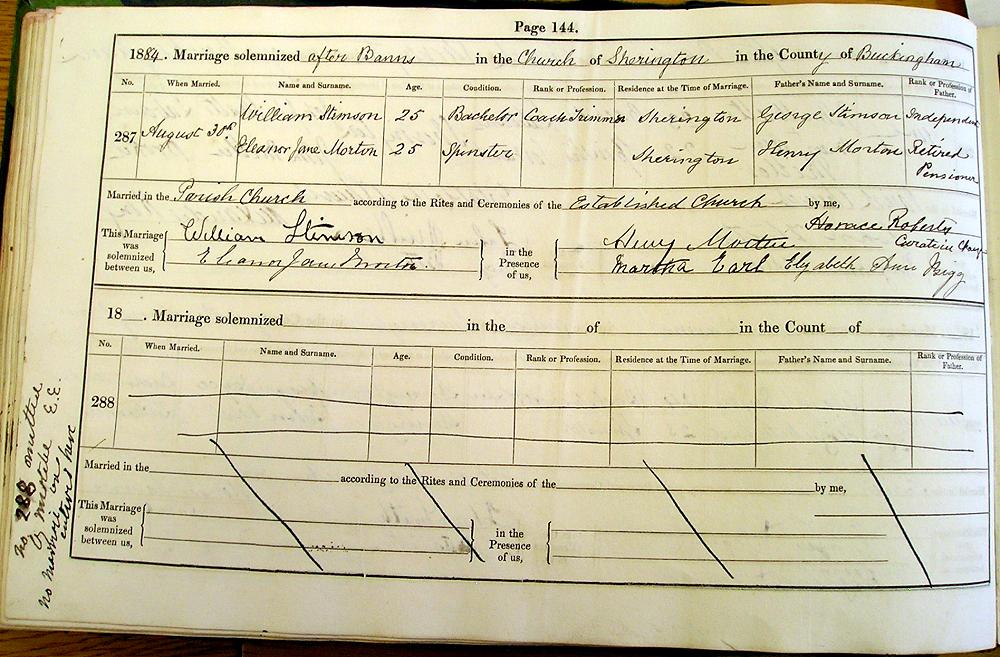 Page 144.
1884. Marriage solemnized after Banns in the Church of Sherington in the County of Buckingham
No. When Married. Name and Surname. Age. Condition. Rank or Profession. Residence at the Time of Marriage. Father's Name and Surname. Rank or Profession of Father.
287 August 30th William Stimson 25 Bachelor Coach Trimmer Sherington George Stimson Independent
Eleanor Jane Morton 25 Spinster Sherington Henry Morton Retired Pensioner
Married in the Parish Church according to the Rites and Ceremonies of the Established Church by me,
Horace Roberts
Curate in Charge
This Marriage was solemnized between us, William Stimson in the Presence of us, Henry Morton
Eleanor Jane Morton. Martha Earl Elizabeth Ann Bigg
18 . Marriage solemnized in the of in the Count of
No. When Married. Name and Surname. Age. Condition. Rank or Profession. Residence at the Time of Marriage. Father's Name and Surname. Rank or Profession of Father.
288
Married in the according to the Rites and Ceremonies of the by me,
This Marriage was solemnized between us, in the Presence of us,
No 288 omitted
by mistake E.E.
no marriage
entered here